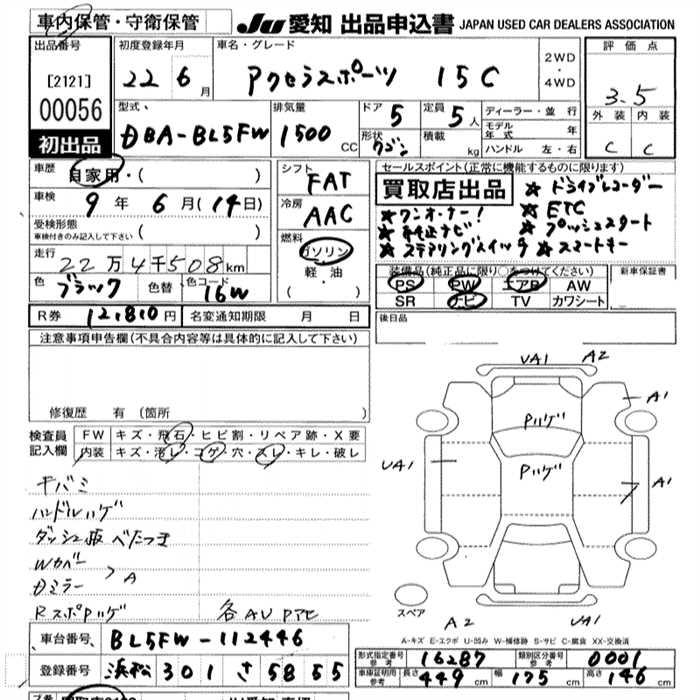 車内保管・守衛保管
JU 愛知 出品申込書 JAPAN USED CAR DEALERS ASSOCIATION
出品番号
[2121]
00056
初出品
初度登録年月
22 6月
車名・グレード
アクセラスポーツ 15C
2WD・4WD
評価点
3.5
外装 内装
C C
型式
DBA-BL5FW
排気量
1500 CC
ドア 5
形状 ワゴン
定員 5人
積載 kg
ディーラー・並行
モデル年式 年
ハンドル 左・右
車歴
自家用・( )
車検 9年 6月(14日)
受検形態
車検付きのみ記入して下さい ( )
走行
22万4千508km
色 ブラック 色替 色コード 16W
シフト FAT
冷房 AAC
燃料
ガソリン
軽・油
( ・ )
セールスポイント(正常に機能するものに限ります)
買取店出品
☆ドライブレコーダー
☆ワンオーナー! ☆ETC
☆純正ナビ ☆プッシュスタート
☆ステアリングスイッチ ☆スマートキー
装備品(純正品に限り○をつけてください)
PS PW エアB AW
SR ナビ TV カワシート
新車保証書
後日品
R券 12,810円 名変通知期限 月 日
注意事項申告欄(不具合内容等は具体的に記入して下さい)
修復歴 有(箇所 )
検査員記入欄
FW キズ・飛石・ヒビ割・リペア跡・X要
内装 キズ・汚レ・コゲ・穴・スレ・キレ・破レ
干バミ
ハンドルハゲ
ダッシュ板べたつき
Wカバー
Dミラー >A
RスポPハゲ 各AU PTE
UA1 A2
A1
Pハゲ
Pハゲ
UA1
A1
スペア
A2 UA1
A-キズ E-エクボ U-凹み W-補修跡 S-サビ C-腐食 XX-交換済
車台番号 BL5FW-112446
登録番号 浜松 301 さ 5855
形式指定番号 参考 16287 類別区分番号 参考 0001
車庫証明用 参考 長さ 449cm 幅 175cm 高さ 146cm